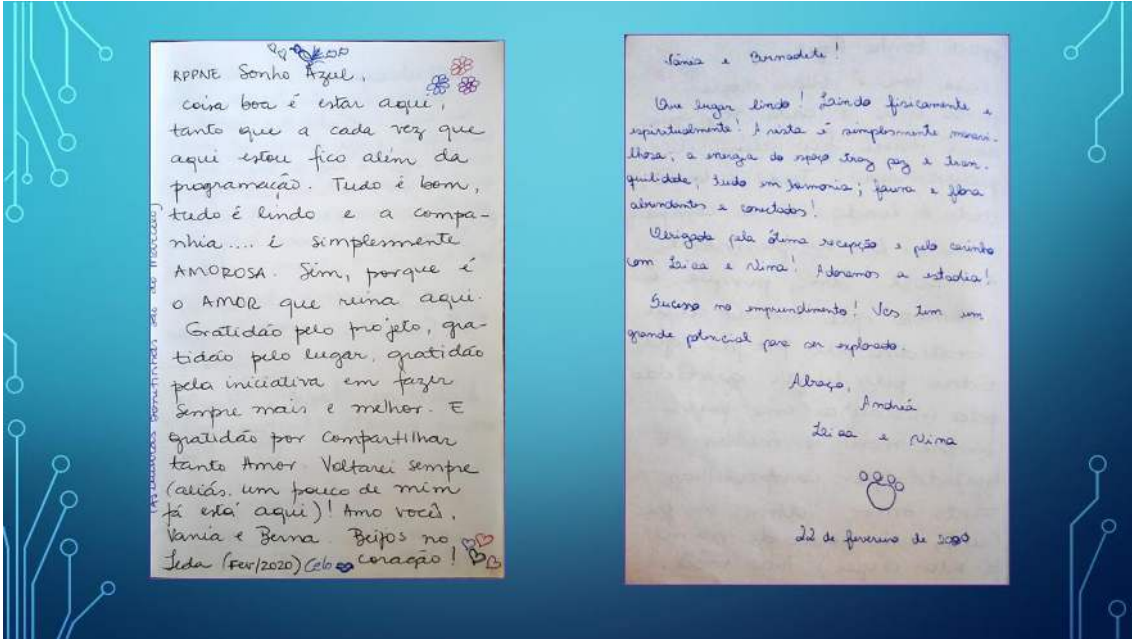 RPPNE Sonho Azul,
coisa boa é estar aqui,
tanto que a cada vez que
aqui estou fico além da
programação. Tudo é bom,
tudo é lindo e a compa-
nhia.... é simplesmente
AMOROSA. Sim, porque é
o AMOR que reina aqui.
Gratidão pelo projeto, gra-
tidão pelo lugar, gratidão
pela iniciativa em fazer
sempre mais e melhor. E
gratidão por compartilhar
tanto Amor. Voltarei sempre
(aliás, um pouco de mim
já está aqui)! Amo vocês,
Vania e Berna. Beijos no
Leda (Fev/2020) Celo coração!
bonitinhas são do Marcelo)
Vânia e Bernadete!
Que lugar lindo! Lindo fisicamente e
espiritualmente! A vista é simplesmente maravi-
lhosa; a energia do espaço traz paz e tran-
quilidade; tudo em harmonia; fauna e flora
abundantes e conectados!
Obrigada pela ótima recepção e pelo carinho
com Laica e Nina! Adoramos a estadia!
Sucesso no empreendimento! Vcs tem um
grande potencial para ser explorado.
Abraço,
Andréa
Laica e Nina
22 de fevereiro de 2020